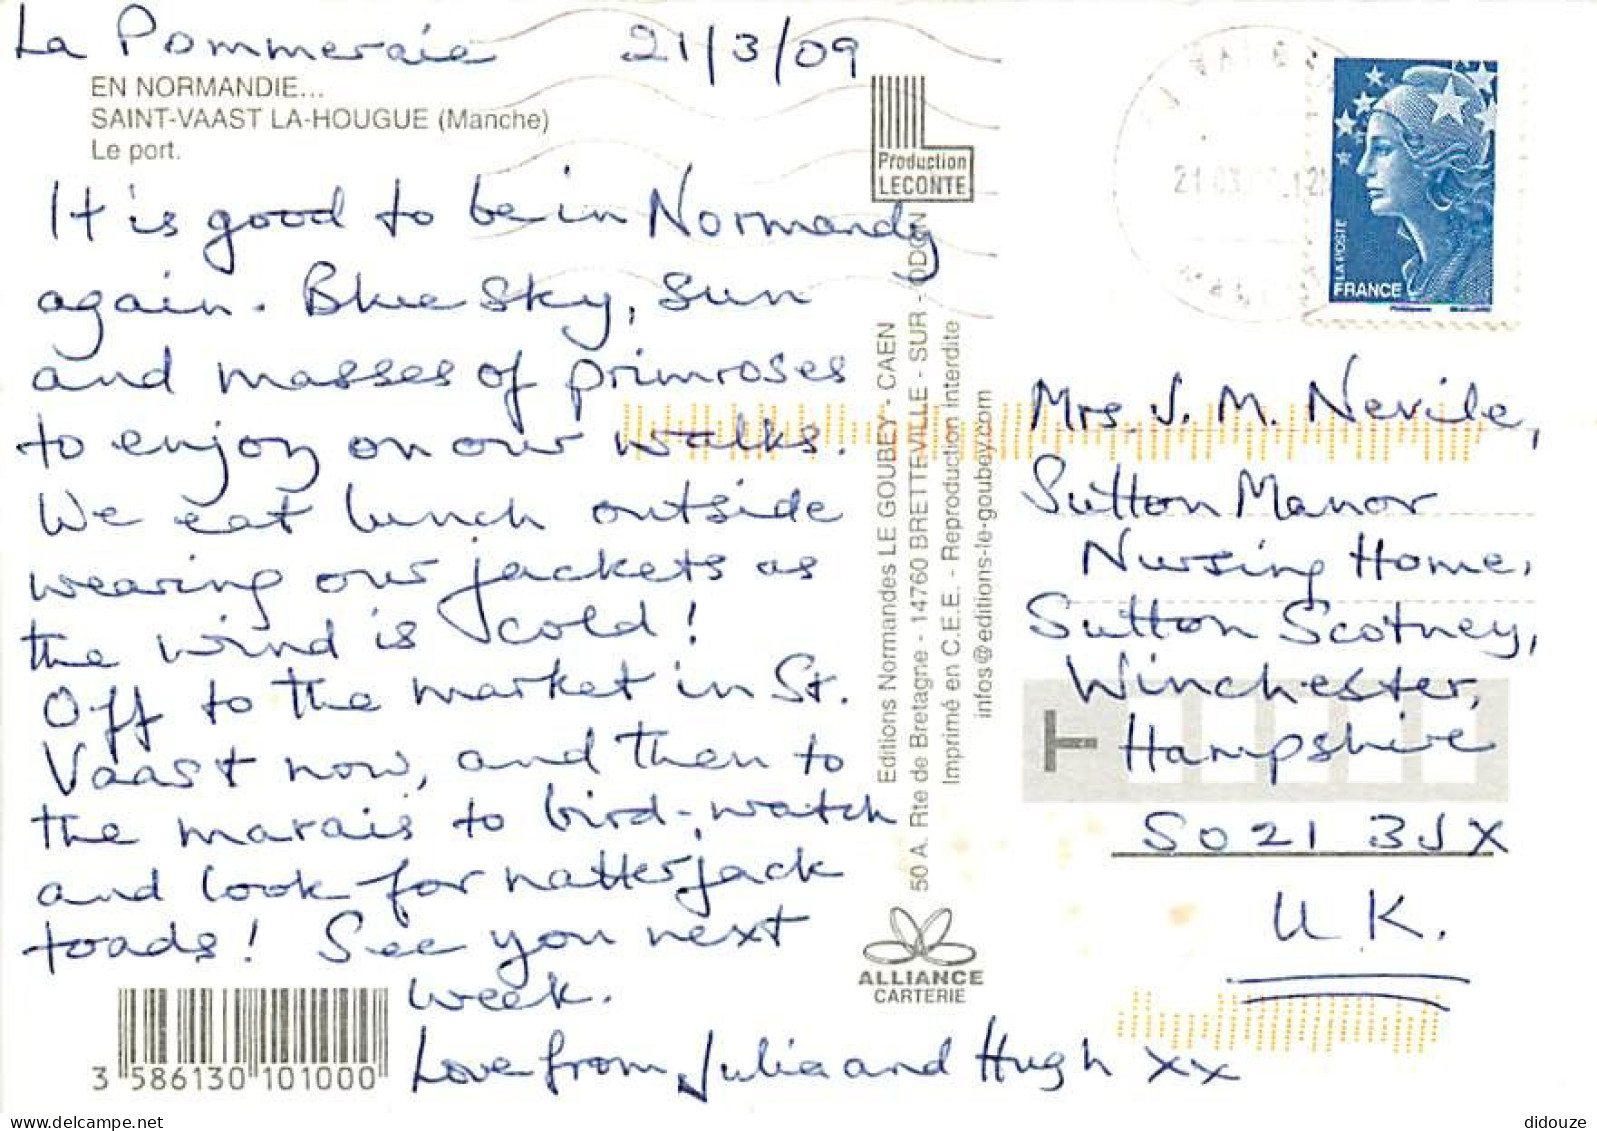 La Pommeraie 21/3/09
EN NORMANDIE...
SAINT-VAAST LA-HOUGUE (Manche)
Le port.
It is good to be in Normandy
again. Blue sky, sun
and masses of primroses
to enjoy on our walks.
We eat lunch outside
wearing our jackets as
the wind is cold!
Off to the market in St.
Vaast now, and then to
the marais to bird-watch
and look for natterjack
toads! See you next
week.
Love from Julia and Hugh xx
3 586130 101000
Production
LECONTE
Editions Normandes LE GOUBEY - CAEN
50 A. Rte de Bretagne - 14760 BRETTEVILLE - SUR - ODON
Imprimé en C.E.E. - Reproduction interdite
infos@editions-le-goubey.com
ALLIANCE
CARTERIE
LA POSTE
FRANCE
Mrs. J. M. Nevile,
Sutton Manor
Nursing Home,
Sutton Scotney,
Winchester,
Hampshire
SO21 3JX
U.K.
T
didouze